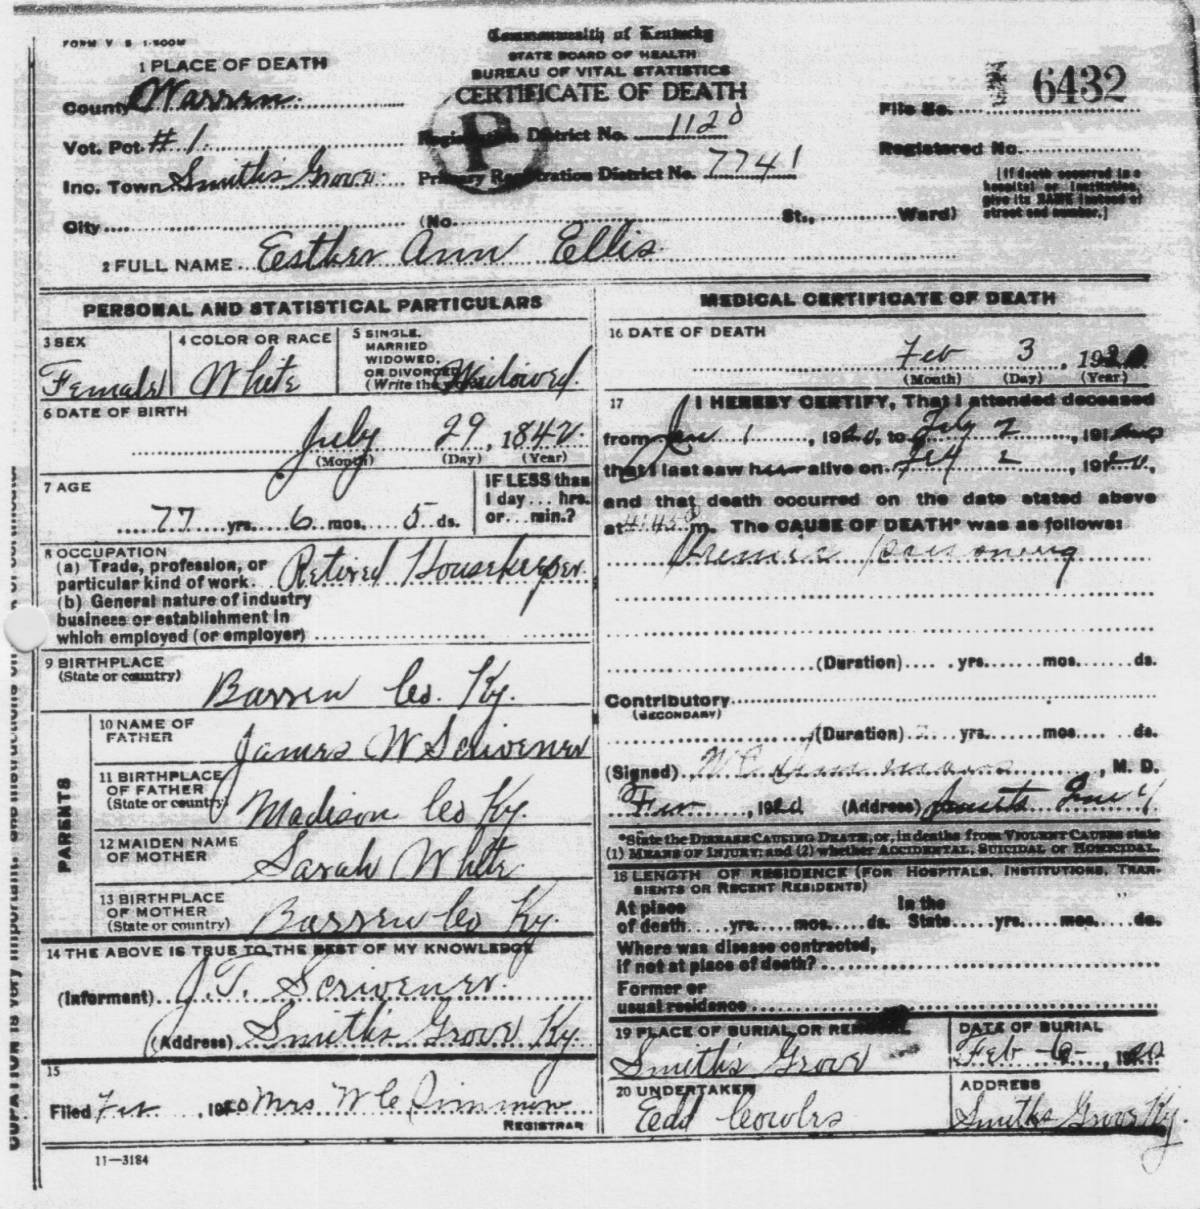 FORM V S 1-500M
Commonwealth of Kentucky
STATE BOARD OF HEALTH
BUREAU OF VITAL STATISTICS
CERTIFICATE OF DEATH
1 PLACE OF DEATH
County Warren
Vot. Pct. # 1
Inc. Town Smiths Grove
City
P
Registration District No. 1120
Primary Registration District No. 7741
(No. St., Ward)
File No. 6432
Registered No.
[If death occurred in a
hospital or institution,
give its NAME instead of
street and number.]
2 FULL NAME Esther Ann Ellis
PERSONAL AND STATISTICAL PARTICULARS
3 SEX
Female
4 COLOR OR RACE
White
5 SINGLE,
MARRIED
WIDOWED,
OR DIVORCED
(Write the Widowed
6 DATE OF BIRTH
July 29, 1842
(Month) (Day) (Year)
7 AGE
77 yrs. 6 mos. 5 ds.
IF LESS than
1 day ... hrs.
or ... min.?
8 OCCUPATION
(a) Trade, profession, or
particular kind of work. Retired Housekeeper
(b) General nature of industry
business or establishment in
which employed (or employer)
9 BIRTHPLACE
(State or country)
Barren Co. Ky.
PARENTS
10 NAME OF
FATHER
James W Scrivener
11 BIRTHPLACE
OF FATHER
(State or country)
Madison Co Ky.
12 MAIDEN NAME
OF MOTHER
Sarah White
13 BIRTHPLACE
OF MOTHER
(State or country)
Barren Co Ky.
14 THE ABOVE IS TRUE TO THE BEST OF MY KNOWLEDGE
(Informant) J.T. Scrivener
(Address) Smiths Grove Ky.
15
Filed Feb , 1920 Mrs W C Simmons
REGISTRAR
11—3184
MEDICAL CERTIFICATE OF DEATH
16 DATE OF DEATH
Feb 3, 1920
(Month) (Day) (Year)
17 I HEREBY CERTIFY, That I attended deceased
from Jan 1, 1920, to Feby 2, 191
that I last saw her alive on Feb 2, 1920,
and that death occurred on the date stated above
at m. The CAUSE OF DEATH* was as follows:
Uremic poisoning
(Duration) yrs. mos. ds.
Contributory
(SECONDARY)
(Duration) yrs. mos. ds.
(Signed) W C Simmons, M. D.
Feb , 1920 (Address) Smiths Grove Ky
*State the DISEASE CAUSING DEATH, or, in deaths from VIOLENT CAUSES state
(1) MEANS OF INJURY; and (2) whether ACCIDENTAL, SUICIDAL OR HOMICIDAL.
18 LENGTH OF RESIDENCE (FOR HOSPITALS, INSTITUTIONS, TRAN-
SIENTS OR RECENT RESIDENTS)
At place
of death yrs. mos. ds.
In the
State yrs. mos. ds.
Where was disease contracted,
if not at place of death?
Former or
usual residence
19 PLACE OF BURIAL OR REMOVAL
Smiths Grove
DATE OF BURIAL
Feb 6, 1920
20 UNDERTAKER
Edd Cowles
ADDRESS
Smiths Grove Ky.